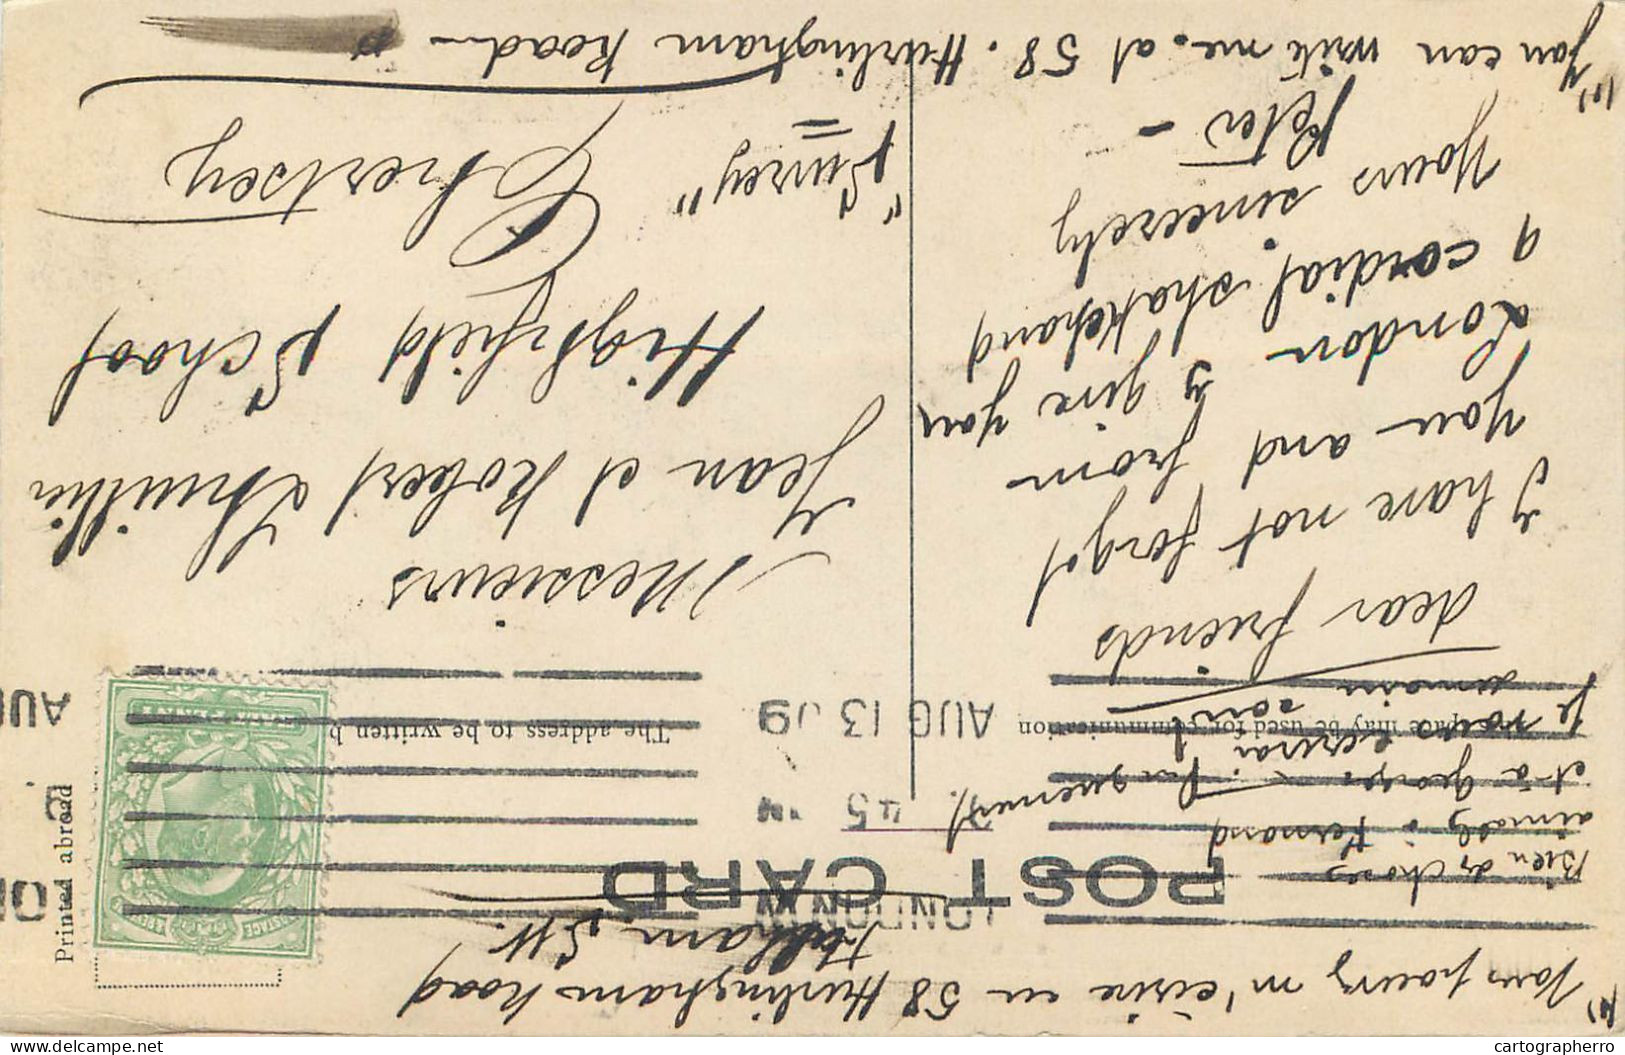 (*) Vous pouvez m'écrire en 58 Hurlingham Road
Fulham S.W.
POST CARD
LONDON
45
AUG 13 09
AU
Printed abroad
POSTAGE
HALFPENNY
space may be used for communication
The address to be written
Bien des choses
aimables à Fernand
et à Georges
je vous écrirai
demain
dear friends
I have not forgot
you and from
London I give you
a cordial shakehand
Yours sincerely
Peter -
(*) You can write me at 58. Hurlingham Road -
Messieurs
Jean et Robert Lhuillier
Highfield School
Chertsey
"Surrey"
cartographerro